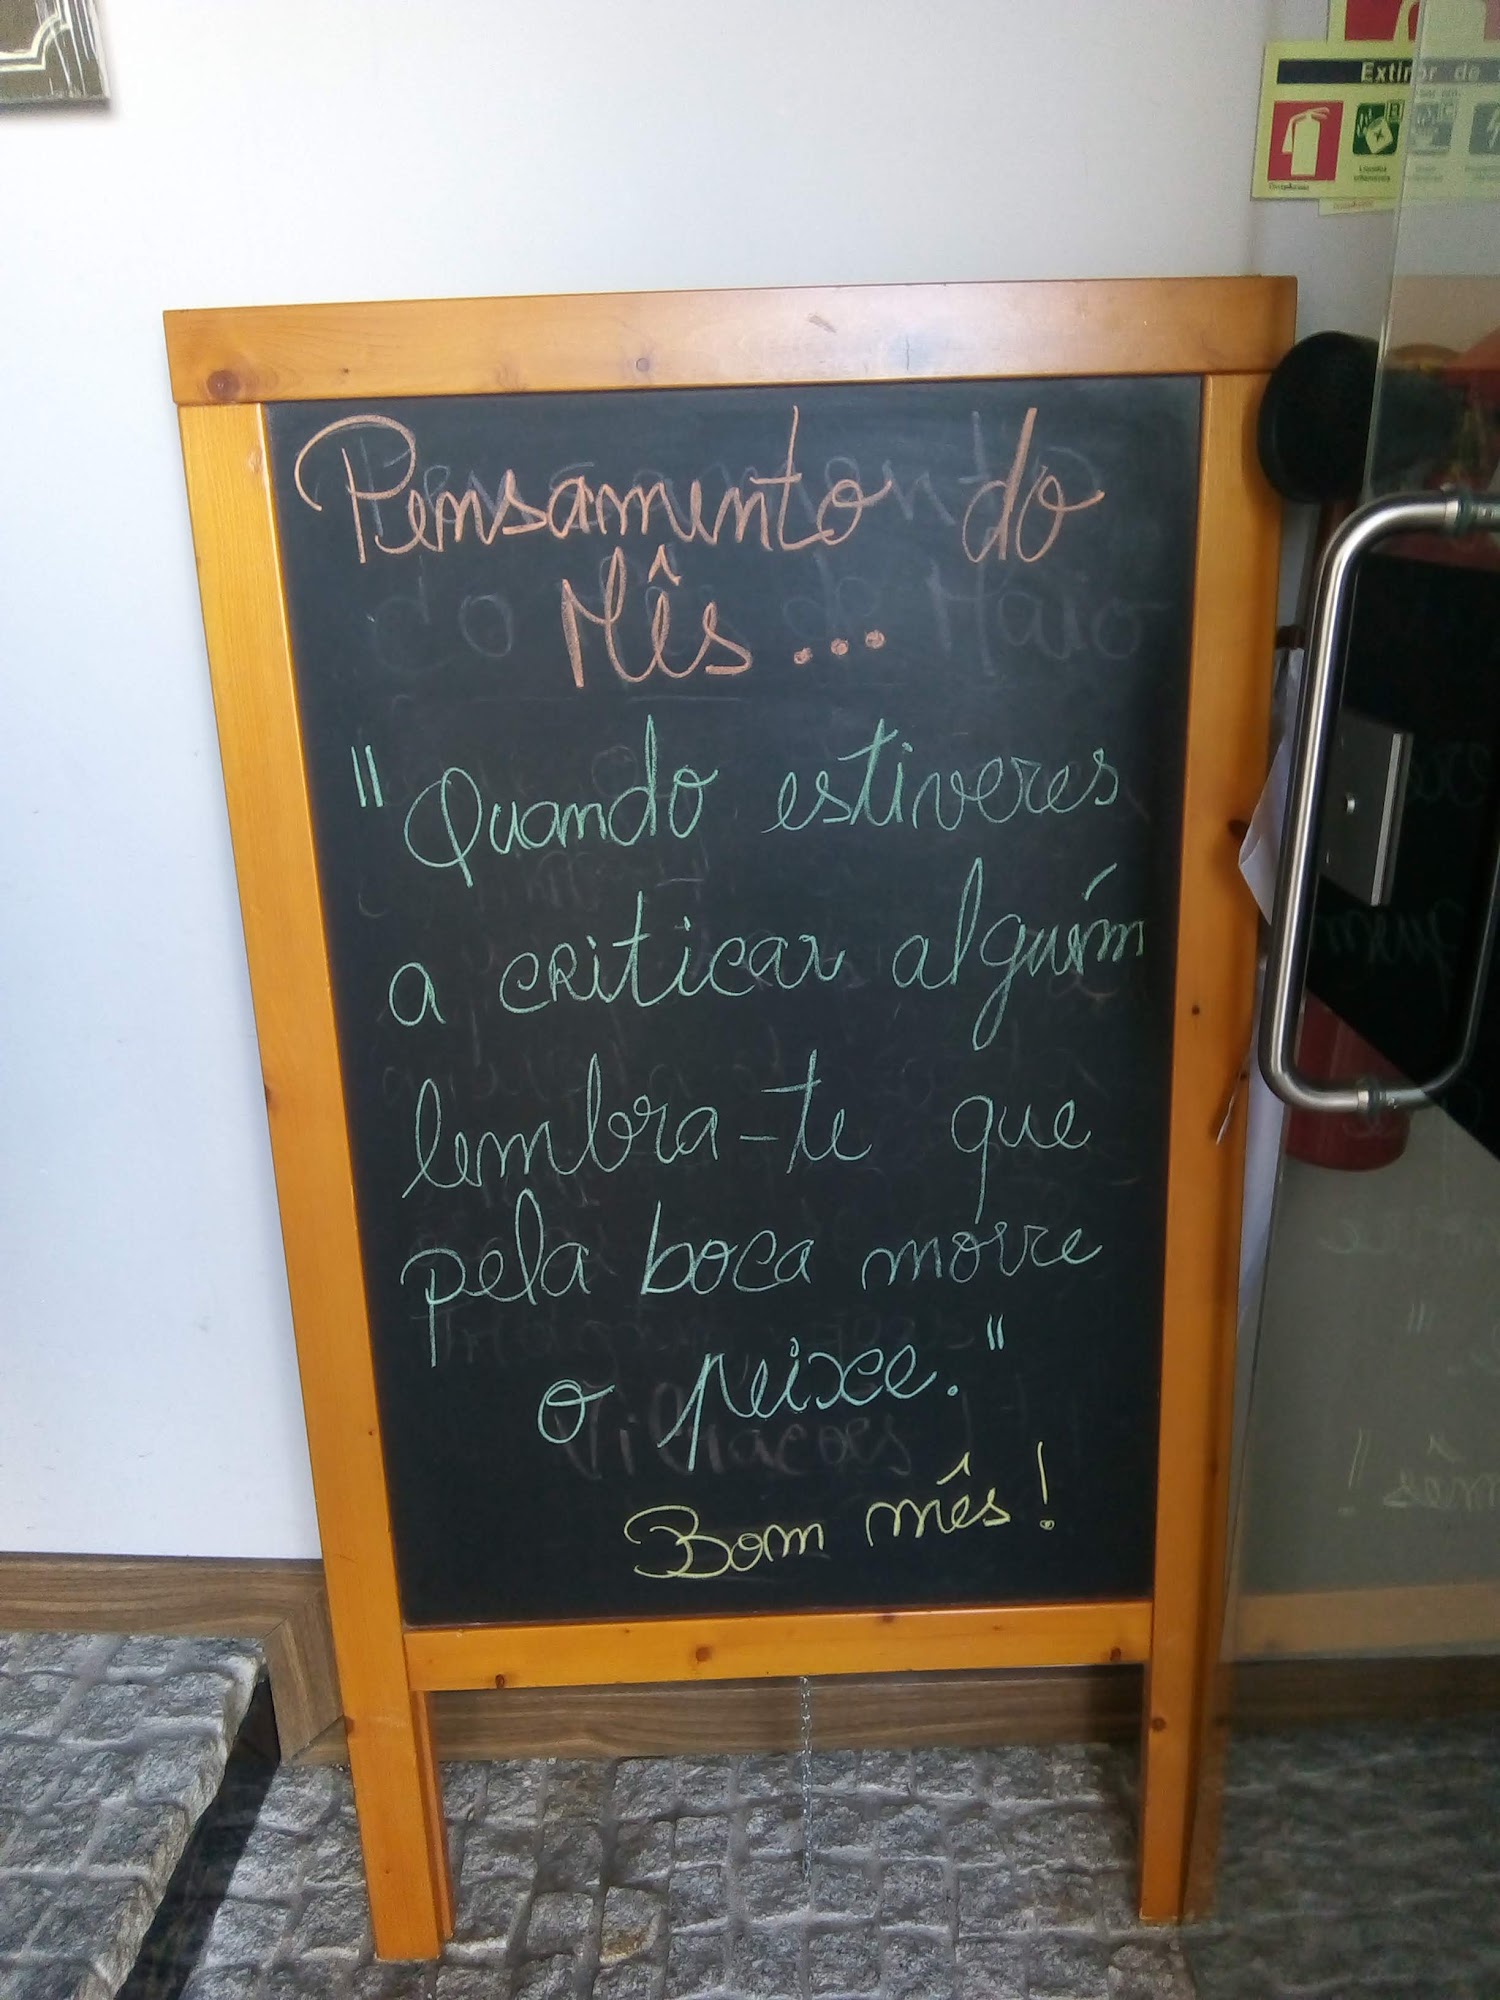 Extintor de
Pensamento do
Mês...
"Quando estiveres
a criticar alguém
lembra-te que
pela boca morre
o peixe."
Bom mês!